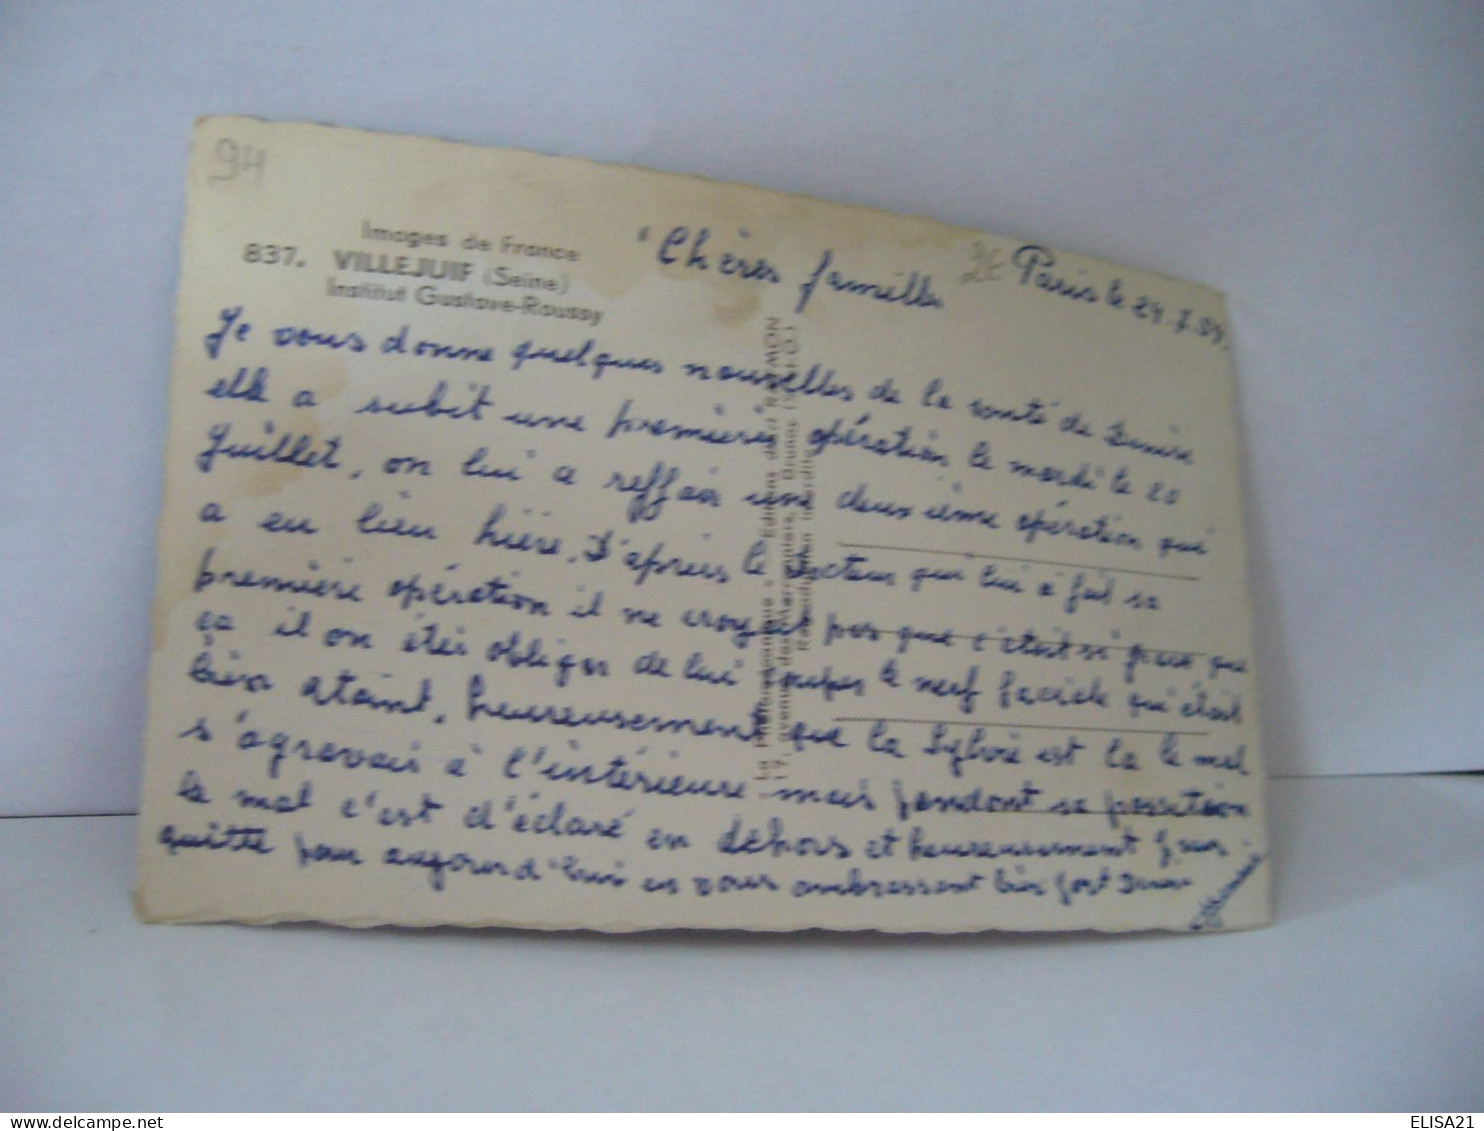 94
Images de France
837. VILLEJUIF (Seine)
Institut Gustave-Roussy
Chères familles
2€
Paris le
Je vous donne quelques nouvelles de la santé de Denise
elle a subit une première opération le mardi le 20
Juillet, on lui a reffair une deuxième opération qui
a eu lieu hière. D'après le docteur qui lui a fait sa
première opération il ne croyait pas que c'était si grave que
ça il on étés obliger de lui couper le nerf faciale qu'était
bien ataint, heureusement que la Sylvie est la le mal
s'agravais à l'intérieure mais pendant sa position
le mal c'est d'éclaré en dehors et heureusement je vous
quitte pour aujourd'hui en vous ambrassant bien fort Denise
ELISA21